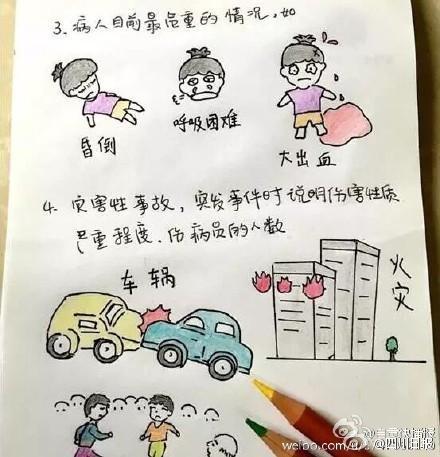 3. 病人目前最危重的情况，如
昏倒
呼吸困难
大出血
4. 灾害性事故，突发事件时说明伤害性质
严重程度、伤病员的人数
车辆
火灾
@四川日报